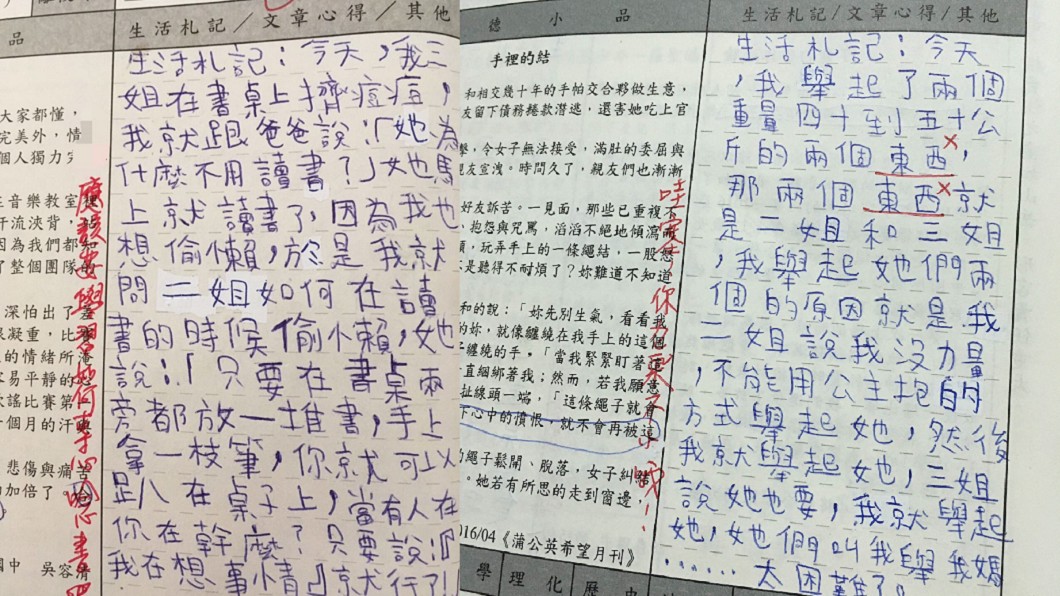 品
生活札記／文章心得／其他
大家都懂，
完美外，情
個人獨力完
生活札記：今天，我三
姐在書桌上擠痘痘，
我就跟爸爸說：「她為
什麼不用讀書？」她馬
上就讀書了，因為我也
想偷懶，於是我就
問二姐如何在讀
書的時候偷懶，她
說：「只要在書桌兩
旁都放一堆書，手上
拿一枝筆，你就可以
趴在桌子上，當有人在
你在幹麼？只要說：『
我在想事情』就行了！
音樂教室裡
汗流浹背，
因為我們都知
了整個團隊
深怕出了差
凝重，比賽
的情緒所淹
易平靜的
歌謠比賽第
個月的汗
悲傷與痛苦
加倍了。
國中 吳容清
應該要學習如何專心唸書
德小品
手裡的結
和相交幾十年的手帕交合夥做生意，
友留下債務捲款潛逃，還害她吃上官
擊，令女子無法接受，滿肚的委屈與
親友宣洩。時間久了，親友們也漸漸
好友訴苦。一見面，那些已重複不
、抱怨與咒罵，滔滔不絕地傾瀉而
，玩弄手上的一條繩結，一股怒
是聽得不耐煩了？妳難道不知道
和的說：「妳先別生氣，看看我
的妳，就像纏繞在我手上的這個
纏繞的手，「當我緊緊盯著這
直綑綁著我；然而，若我願意
扯線頭一端，「這條繩子就會
下心中的憤恨，就不會再被這
繩子鬆開、脫落，女子糾結
。她若有所思的走到窗邊，
016/04《蒲公英希望月刊》
學 理 化 歷 史
哇塞
你
生活札記／文章心得／其他
生活札記：今天
，我舉起了兩個
重量四十到五十公
斤的兩個東西，
那兩個東西就
是二姐和三姐
，我舉起她們兩
個的原因就是我
二姐說我沒力量
，不能用公主抱的
方式舉起她，然後
我就舉起她，三姐
說她也要，我就舉起
她，她們叫我舉我媽
……太困難了。